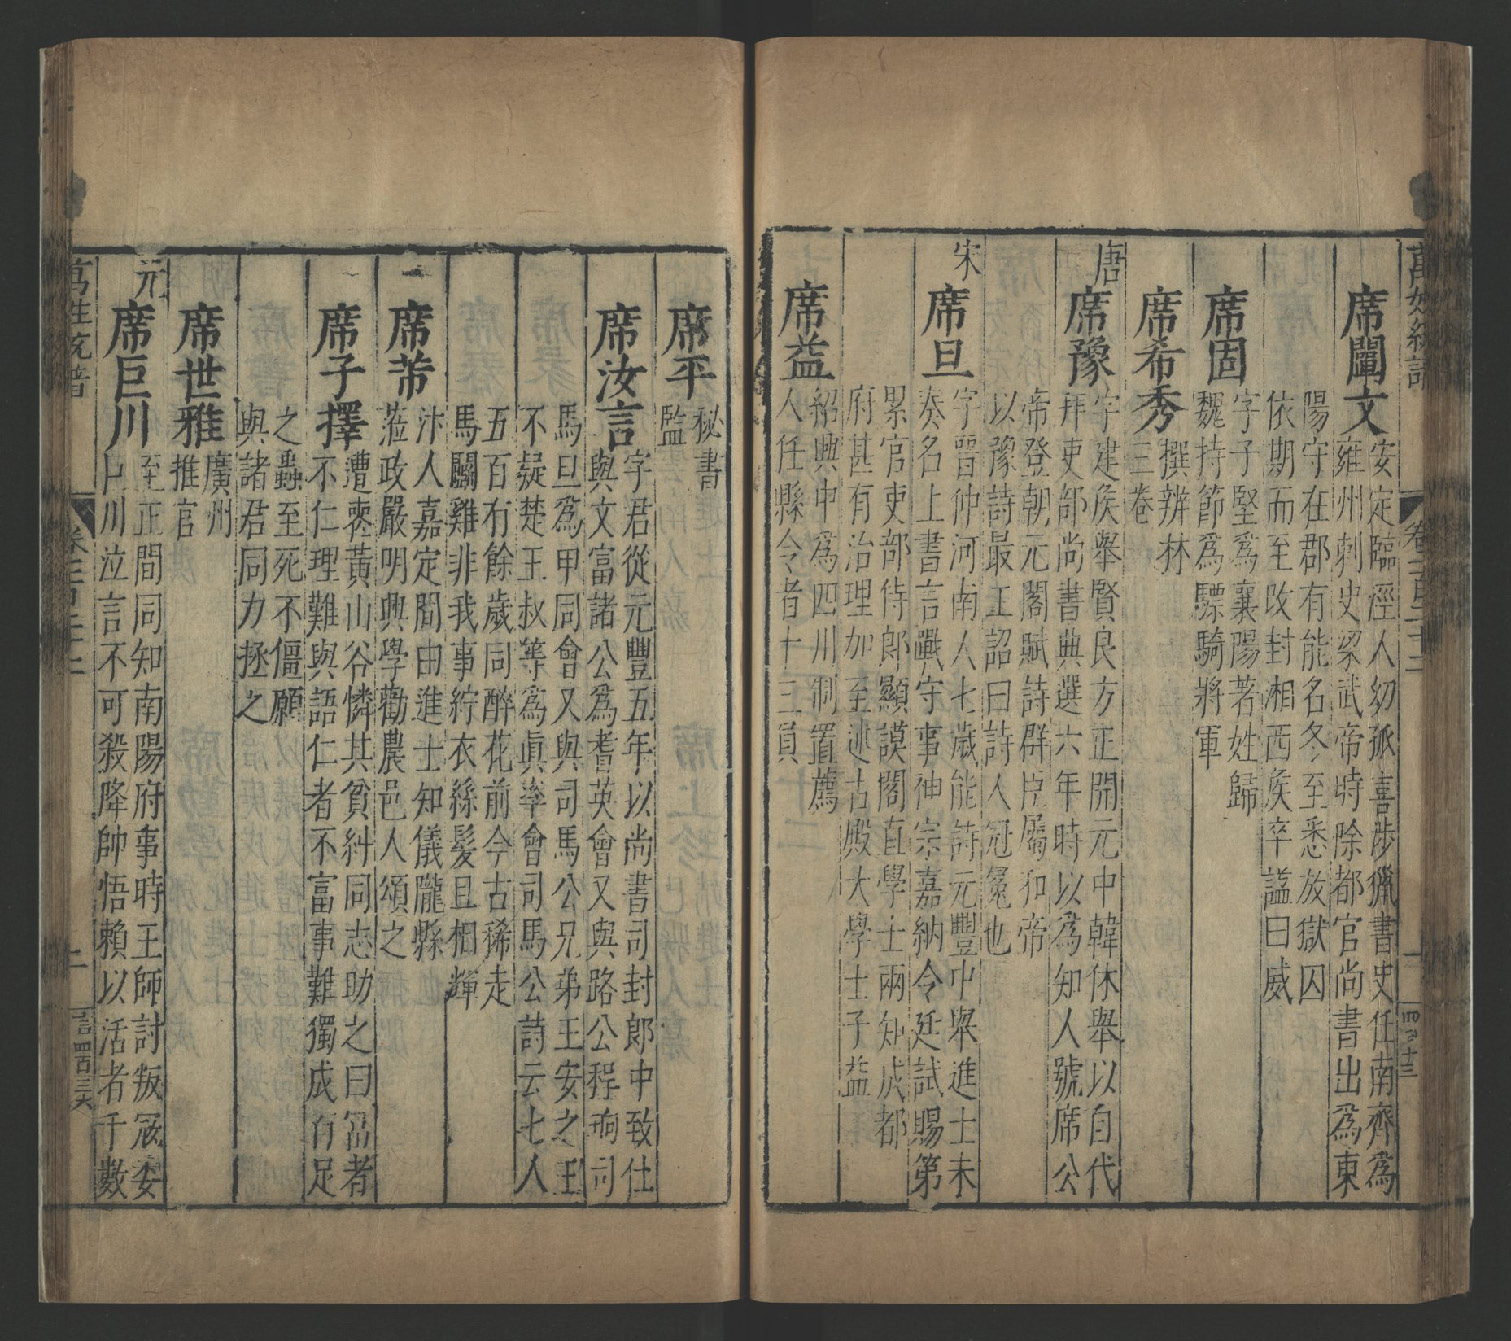 席闡文
安定臨涇人幼孤喜涉獵書史任南齊為
雍州刺史梁武帝時除都官尚書出為東
陽守在郡有能名冬至悉放獄囚
依期而至改封湘西侯卒謚曰威
席固
字子堅為襄陽著姓歸
魏持節為驃騎將軍
席希秀
撰辨林
三卷
唐
席豫
字建侯舉賢良方正開元中韓休舉以自代
拜吏部尚書典選六年時以為知人號席公
帝登朝元閣賦詩群臣屬和帝
以豫詩最工詔曰詩人冠冕也
宋
席旦
字晉仲河南人七歲能詩元豐中舉進士未
奏名上書言戰守事神宗嘉納令廷試賜第
累官吏部侍郎顯謨閣直學士兩知成都
府甚有治理加至述古殿大學士子益
席益
紹興中為四川制置薦
人任縣令者十三員
席平
秘書
監
席汝言
字君從元豐五年以尚書司封郎中致仕
與文富諸公為耆英會又與路公程珦司
馬旦為甲同會又與司馬公兄弟王安之王
不疑楚王叔等為真率會司馬公詩云七人
五百有餘歲同醉花前今古稀走
馬鬬雞非我事紵衣絲髮且相輝
席芾
汴人嘉定間由進士知儀隴縣
蒞政嚴明興學勸農邑人頌之
席子擇
遭喪黃山谷憐其貧糾同志助之曰富者
不仁理難與語仁者不富事難獨成有足
之蝨至死不僵願
與諸君同力拯之
席世雅
廣州
推官
元
席巨川
至正間同知南陽府事時王師討叛寇委
巨川泣言不可殺降帥悟賴以活者千數
萬姓統譜
卷三百二十二
二